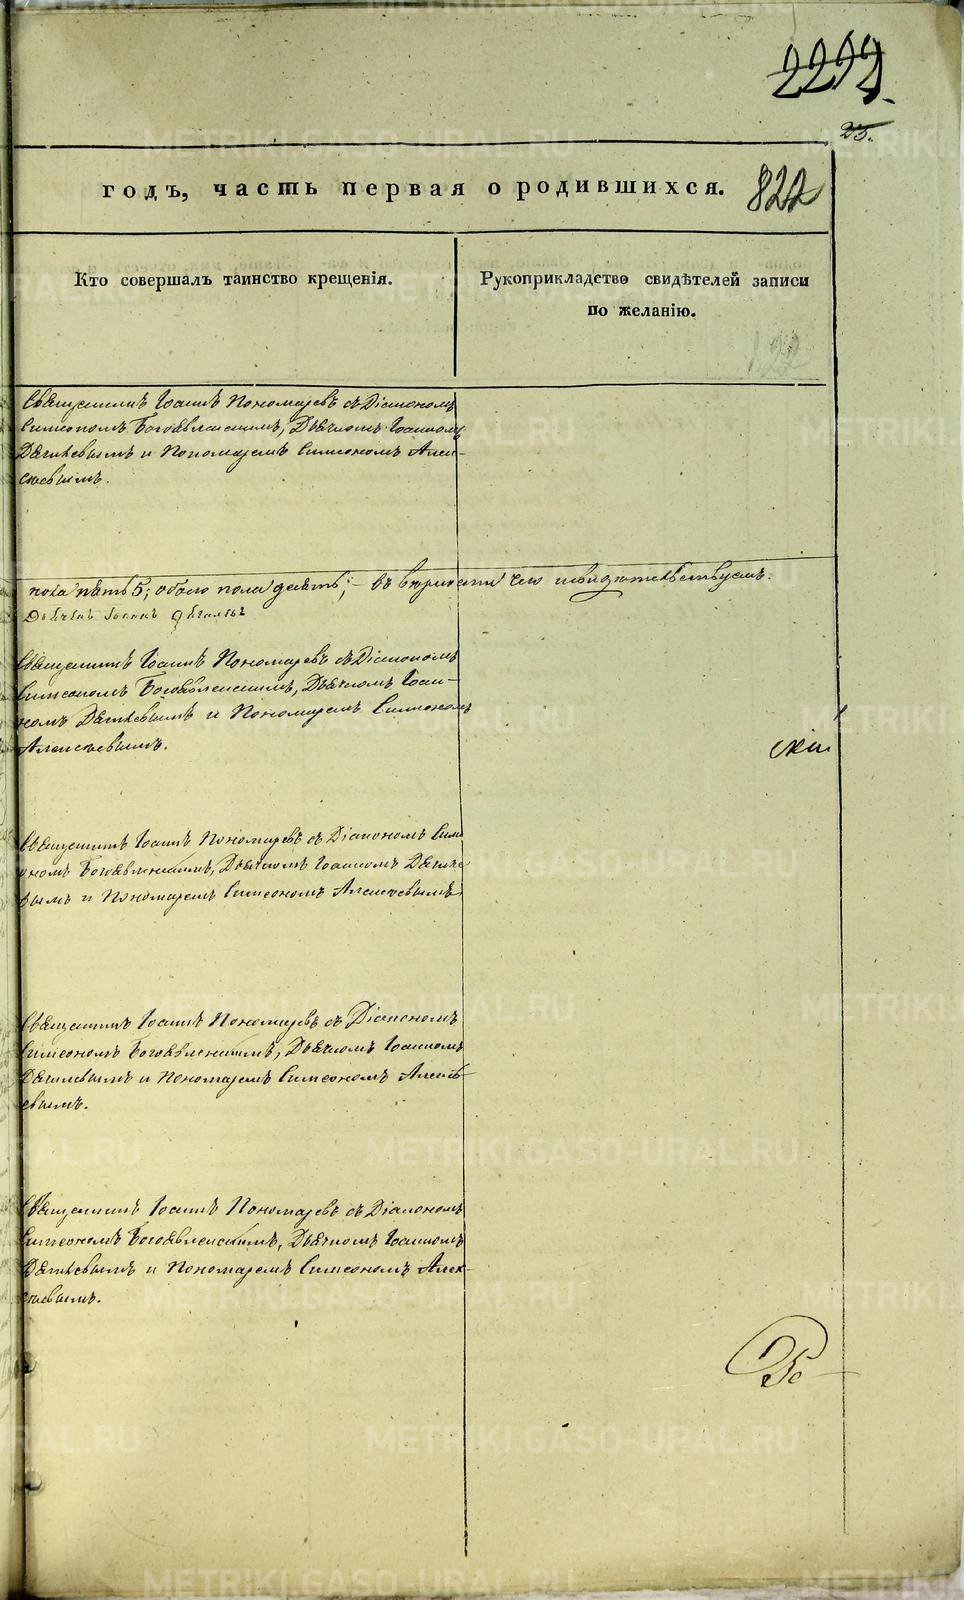 2292.
25.
годъ, часть первая о родившихся. 822
Кто совершалъ таинство крещенія.
Рукоприкладство свидѣтелей записи
по желанію.
122
Священникъ Іоаннъ Пономаревъ съ Діакономъ
Симеономъ Богоявленскимъ, Дьячкомъ Іоанномъ
Дягилевымъ и Пономаремъ Симеономъ Алек-
сѣевымъ.
пола пять 5; обоего пола десять; въ вѣрности чего и свидѣтельствуемъ.
Дьячекъ Іоаннъ Дягилевъ
Священникъ Іоаннъ Пономаревъ съ Діакономъ
Симеономъ Богоявленскимъ, Дьячкомъ Іоан-
номъ Дягилевымъ и Пономаремъ Симеономъ
Алексѣевымъ.
скій
Священникъ Іоаннъ Пономаревъ съ Діакономъ Симе
ономъ Богоявленскимъ, Дьячкомъ Іоанномъ Дягиле
вымъ и Пономаремъ Симеономъ Алексѣевымъ
Священникъ Іоаннъ Пономаревъ съ Діакономъ
Симеономъ Богоявленскимъ, Дьячкомъ Іоанномъ
Дягилевымъ и Пономаремъ Симеономъ Алексѣ-
евымъ.
Священникъ Іоаннъ Пономаревъ съ Діакономъ
Симеономъ Богоявленскимъ, Дьячкомъ Іоанномъ
Дягилевымъ и Пономаремъ Симеономъ Алек-
сѣевымъ.
METRIKI.GASO-URAL.RU